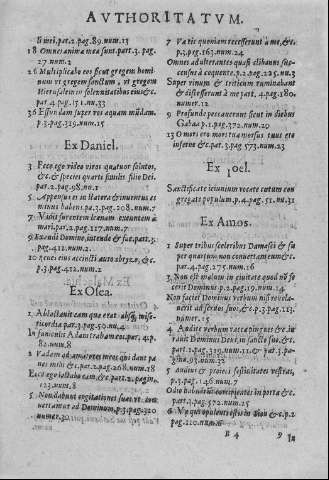 AVTHORITATVM.
li mei.par.2.pag.89.num.15
18 Omnes animæ meæ sunt.part.3.pag.
27.num.2
26 Multiplicabo eos sicut gregem homi
num vt gregem sanctum, vt gregem
Hierusalem in solemnitatibus eius &c.
par.4.pag.51.nu.33
36 Effundam super vos aquam mũdam.
p.3.pag.329.num.15
Ex Daniel.
3 Ecce ego video viros quatuor solutos,
&c.& species quarti similis filio Dei.
par.2.pag.98.nu.1
5 Appensus es in statera & inuentus es
minus habens.pa.3.pag.208.num.7
7 Vidit surgentem leænam ex
mari.par.2.pag.117.num.7
9 Exaudi Domine,intende & fac.part.3.
pag.412.num.2
10 neui eius accincti auro obryzo, &c.
p.3.pag.412.num.2
Ex Osea.
1 Ablactauit eam quæ erat absq; mise-
ricordia par.3.pag.50.nu.4
In funiculis Adam traham eos.par.4.p.
82.nu.8
2 Vadam ad amatores meos qui dant pa
nes mihi &c.par.2.pag.268.num.18
Ecce ego lactabo eam &c.par.2.pagin.
123.num.8
5 Non dabunt cogitationes suas vt reuer
tantur ad Dominum.p.3.pag.320
num.30
7 Væ tis quoniam recesserũt à me,&c.
p.3.pag.163.num.24
Omnes adulterantes quasi clibanus suc-
census à coquente.p.2.pag.225.nu.3
Super vinum & triticum ruminabant
& discesserũt à me part.4.pag.180.
numer.12
9 Profunde peccauerunt sicut in diebus
Gabaa p.1.pag.372.num.20
13 O mors ero mors tua morsus tuus ero
inferne &c.par.3.pag.573.num.23
Ex Joel.
Sanctificate ieiunium vocate cætum con
gregate populum p.4.pag.51.nu.31
Ex Amos.
1 Super tribus sceleribus Damasci & su
per quatuor non conuertam eum & c.
par.4.pag.275.num.16
3 Non est malum in ciuitate quod nõ fe
cerit Dominus p.2.pag.19.num.14
Non faciet Dominus verbum nisi reuela-
uerit ad seruos suos,&c.p.3.pag.113
numer.15
4 Audite verbum vaccæ pingues & iu
rauit Dominus Deus,in sancto suo,&c.
part.2.pag.239.num.11 & part.3.pa-
gin.
5 Audiui & proieci festiuitates vestras,
p.3.pag.146.num.7
Odio habui corripientes in porta &c.part.
3.pag.572.num.25
6 Væ qui opulenti estis in Sion &c.p.2
pag.220.num.6
B 4
9 In